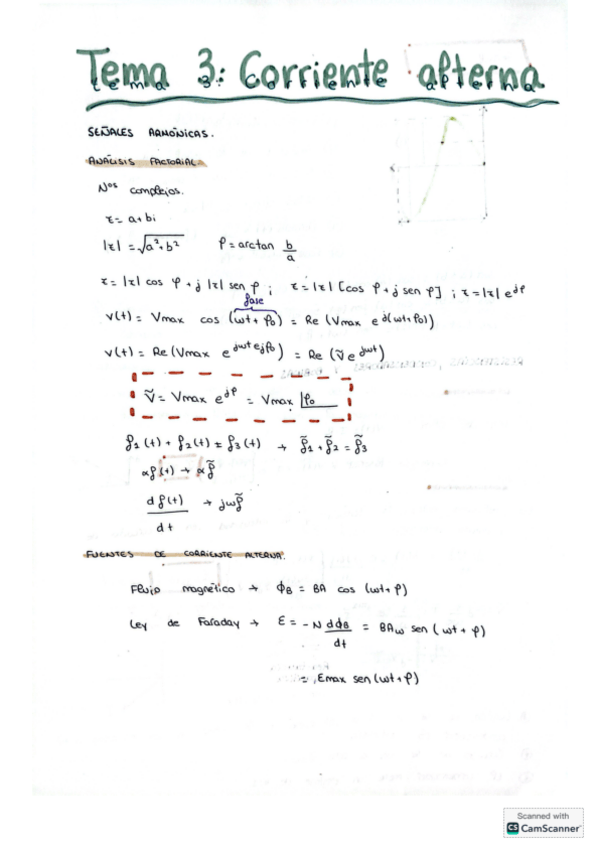 Tema 3: Corriente alterna
SEÑALES ARMÓNICAS.
ANÁLISIS FACTORIAL
Nos complejos.
z = a+bi
|z| = √a²+b² φ = arctan b/a
z = |z| cos φ + j |z| sen φ ; z = |z| [cos φ + j sen φ] ; z = |z| e^jφ
fase
v(t) = Vmax cos (ωt + φ0) = Re (Vmax e^j(ωt+φ0))
v(t) = Re (Vmax e^jωt e^jφ0) = Re (Ṽ e^jωt)
Ṽ = Vmax e^jφ = Vmax |φ0
f1 (t) + f2(t) = f3 (t) → f̃1 + f̃2 = f̃3
αf(t) → αf̃
d f(t)/dt → jωf̃
FUENTES DE CORRIENTE ALTERNA.
Flujo magnético → ϕB = BA cos (ωt + φ)
Ley de Faraday → E = -N dϕB/dt = BAω sen (ωt + φ)
= Emax sen (ωt + φ)
Scanned with
CS CamScanner